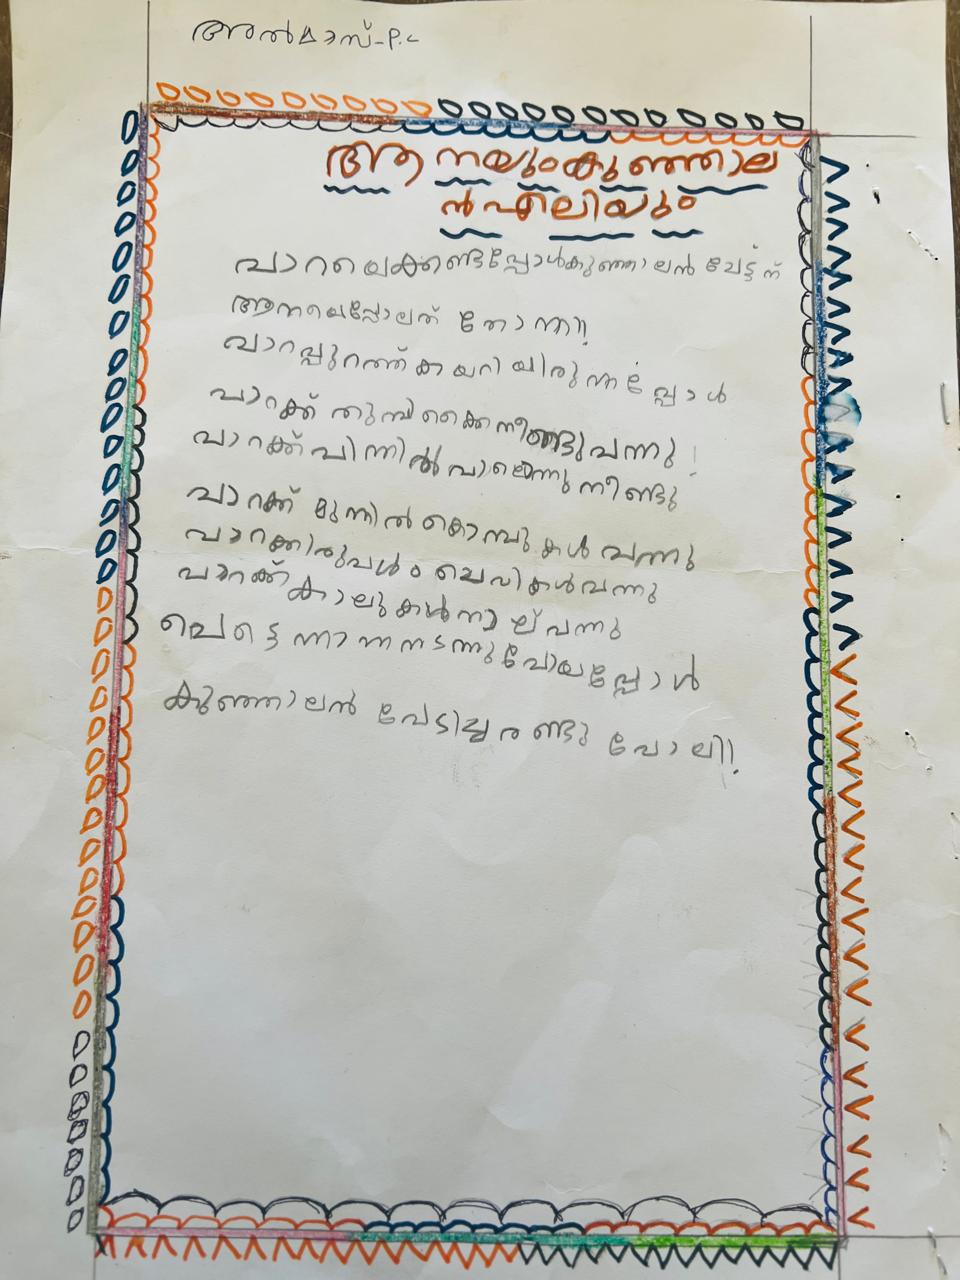 അൽമാസ്-P.C
ആനയുംകുഞ്ഞാല
ൻഎലിയും
പാറയെക്കണ്ടപ്പോൾകുഞ്ഞാലൻ പേട്ടന്
ആനയെപ്പോലത് തോന്നി!
പാറപ്പുറത്ത് കയറിയിരുന്നപ്പോൾ
പാറക്ക് തുമ്പികൈനീണ്ടുവന്നു!
പാറക്ക് പിന്നിൽവാലൊന്നുനീണ്ടു
പാറക്ക് മുന്നിൽ കൊമ്പുകൾ വന്നു
പാറക്കിരുവശം ചെവികൾവന്നു
പാറക്ക് കാലുകൾനാല് വന്നു
പെട്ടെന്നാനനടന്നുപോയപ്പോൾ
കുഞ്ഞാലൻ പേടിച്ചരണ്ടു പോലി!